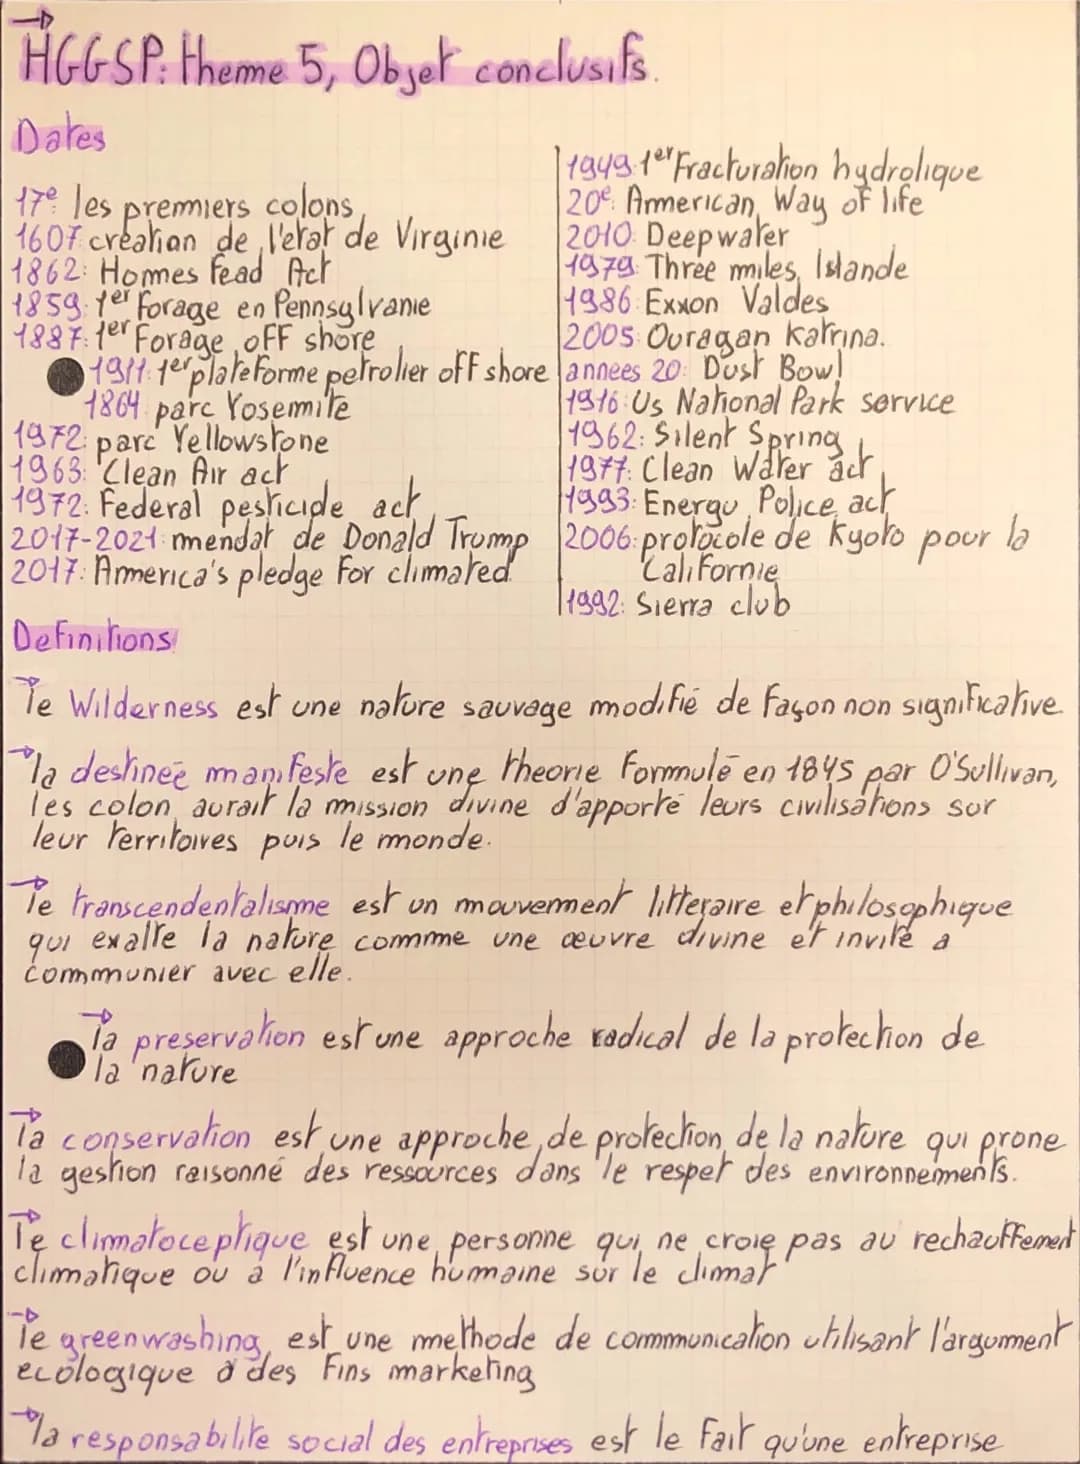 HGGSP: theme 5, Objet conclusifs.
Dates
17e les premmiers colons
1607 création de l'etat de Virginie
1862: Hommes fead Act
1859: 1er forage en Pennsylvanie
1887: 1er Forage off shore
1911: 1er plateforme petrolier off shore
1864 parc Yosemite
1972: parc Yellowstone
1963: Clean Air act
1972: Federal pesticide act
2017-2021: mendat de Donald Trump
2017: Ammerica's pledge For climated
1949: 1er Fracturation hydrolique
20e: Ammerican Way of life
2010: Deepwater
1979: Three miles Islande
1986: Exxon Valdes
2005: Ouragan Katrina.
annees 20: Dust Bowl
1916: Us National Park service
1962: Silent Spring
1977: Clean Water act
1993: Energu Police act
2006: protocole de Kyoto pour la
Californie
1992: Sierra club
Definitions
→ le Wilderness est une nature sauvage modifié de façon non significative
→ la destineé manifeste est une theorie formulé en 1845 par O'Sullivan,
les colon aurait la mission divine d'apporté leurs civilisations sur
leur territoires puis le monde.
→ le transcendentalisme est un mouvement litteraire et philosophique
qui exalte la nature comme une œuvre divine et invite a
communier avec elle.
→ la preservation est une approche radical de la protection de
la nature
→ la conservation est une approche de protection de la nature qui prone
la gestion raisonné des ressources dans le respet des environnements.
→ le climatoceptique est une personne qui ne croie pas au rechauffement
climatique ou a l'influence humaine sur le climat
→ le greenwashing est une methode de communication utilisant l'argument
ecologique a des fins marketing
→ la responsabilite social des entreprises est le fait qu'une entreprise